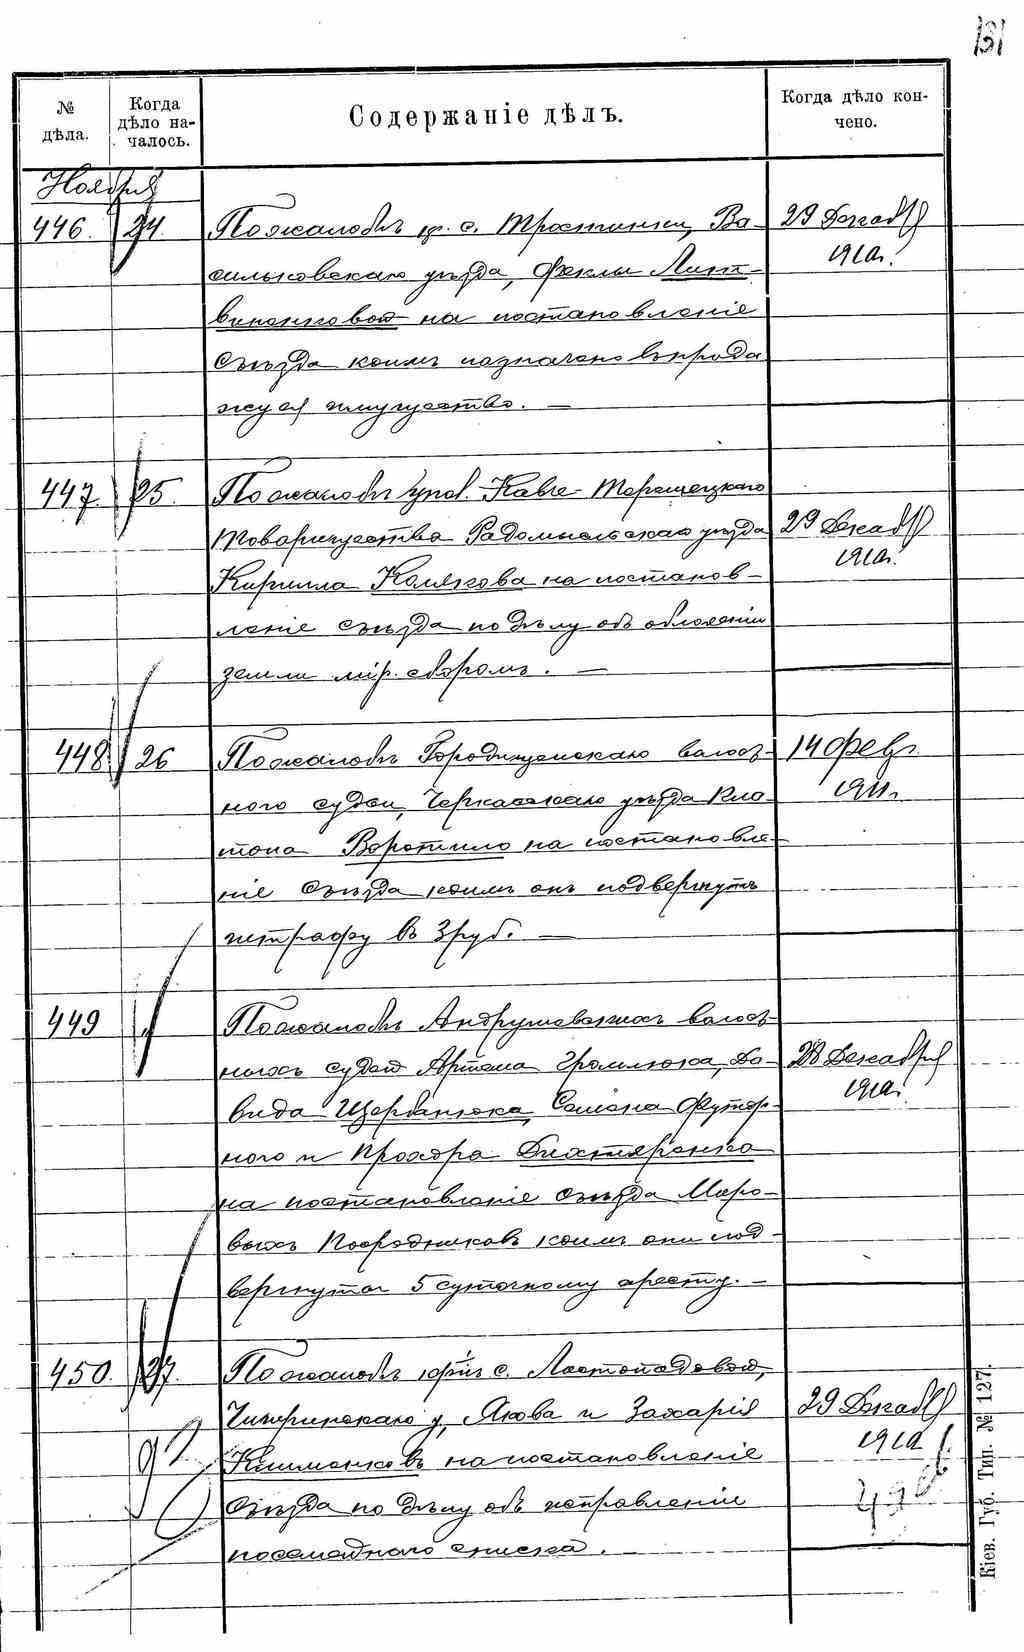 131
№ дѣла.
Когда дѣло началось.
Содержаніе дѣлъ.
Когда дѣло кончено.
Ноября
446. 24. По жалобѣ кр. с. Тростинки, Ва-
сильковскаго уѣзда, Феклы Лит-
виненковой на постановленіе
Съѣзда коимъ назначено въ прода
жу ея имущество. —
29 Декабря
1910г.
447. 25. По жалобѣ упол. Торещецкаго
товарищества Радомысльскаго уѣзда
Кирилла Колякова на постанов-
леніе съѣзда по дѣлу объ обложеніи
земли мір. сборомъ. —
29 Декабр
1910г.
448 26 По жалобѣ Городищенскаго волост-
ного судьи, Черкасскаго уѣзда Пла-
тона Воротило на постановле-
ніе Съѣзда коимъ онъ подвергнутъ
штрафу въ 3 руб. —
14 февр.
1911г.
449 По жалобѣ Андрушевскихъ волост-
ныхъ судей Артема Громлюка, Да-
вида Щербанюка, Семена Футор-
ного и Прохора Дихтяренко
на постановленіе Съѣзда Миро-
выхъ Посредниковъ коимъ они под-
вергнуты 5 суточному аресту. —
28 Декабря
1910г.
450. 27. По жалобѣ кр-нъ с. Листопадовой,
Чигиринскаго у, Якова и Захарія
Клименковъ на постановленіе
Съѣзда по дѣлу объ исправленіи
посемейного списка.
29 Декабр
1910
Кіев. Губ. Тип. № 127.